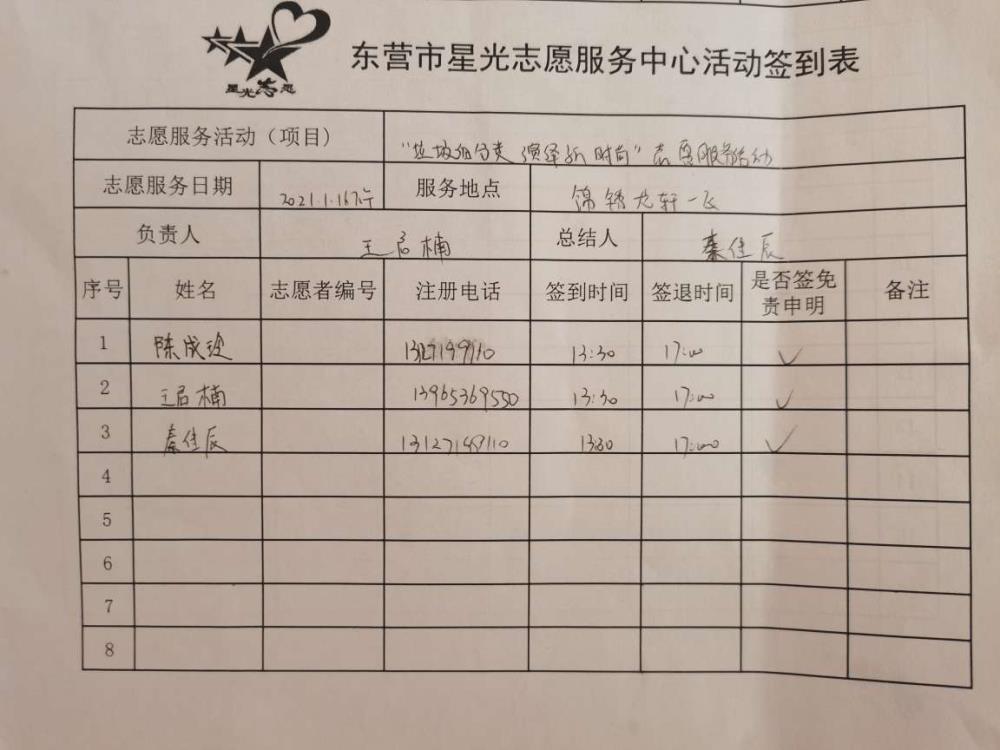 星光志愿
东营市星光志愿服务中心活动签到表
志愿服务活动（项目） "垃圾细分类 演绎新时尚"志愿服务活动
志愿服务日期 2021.1.16下午 服务地点 锦绣龙轩一区
负责人 王启楠 总结人 秦佳辰
序号 姓名 志愿者编号 注册电话 签到时间 签退时间 是否签免责申明 备注
1 陈成玲 13:30 17:00 ✓
2 王启楠 13965369550 13:30 17:00 ✓
3 秦佳辰 13127149110 13:30 17:00 ✓
4
5
6
7
8